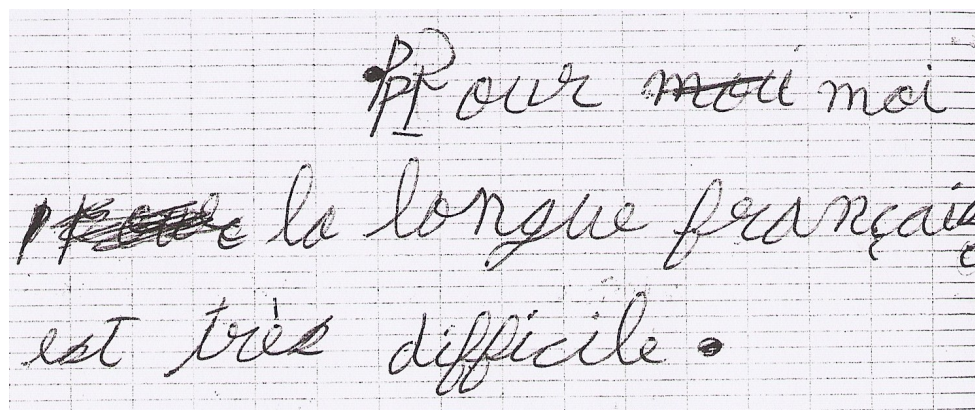 Pour moi moi
la longue français
est très difficile.